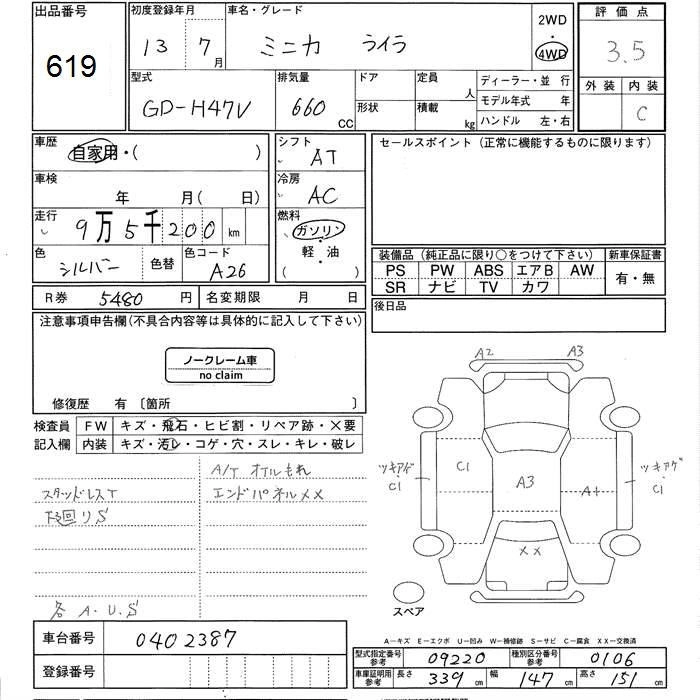 出品番号 初度登録年月 車名・グレード 2WD 評価点
619 13 7月 ミニカ ライラ ・ 4WD 3.5
型式 排気量 ドア 定員 人 ディーラー・並 行 外装 内装
GD-H47V 660 CC 形状 積載 kg モデル年式 年 C
ハンドル 左・右
車歴 自家用・( ) シフト AT セールスポイント(正常に機能するものに限ります)
車検 年 月( 日) 冷房 AC
走行 9万5千200km 燃料 ガソリン
軽・油
( )
色 シルバー 色替 色コード A26
装備品(純正品に限り○をつけて下さい) 新車保証書
PS PW ABS エアB AW 有・無
SR ナビ TV カワ
R券 5480 円 名変期限 月 日 後日品
注意事項申告欄(不具合内容等は具体的に記入して下さい)
ノークレーム車
no claim
修復歴 有 〔箇所 〕
検査員 FW キズ・飛石・ヒビ割・リペア跡・×要
記入欄 内装 キズ・汚レ・コゲ・穴・スレ・キレ・破レ
A/T オイルもれ
スタッドレスT エンドパネルXX
下回りS
各 A.U.S
A2 A3
ツキアゲ・C1 C1 A3 A1 ツキアゲ・C1
XX
スペア
車台番号 0402387
登録番号
A-キズ E-エクボ U-凹み W-補修跡 S-サビ C-腐食 XX-交換済
型式指定番号 参考 09220 種別区分番号 参考 0106
車庫証明用 参考 長さ 339 cm 幅 147 cm 高さ 151 cm